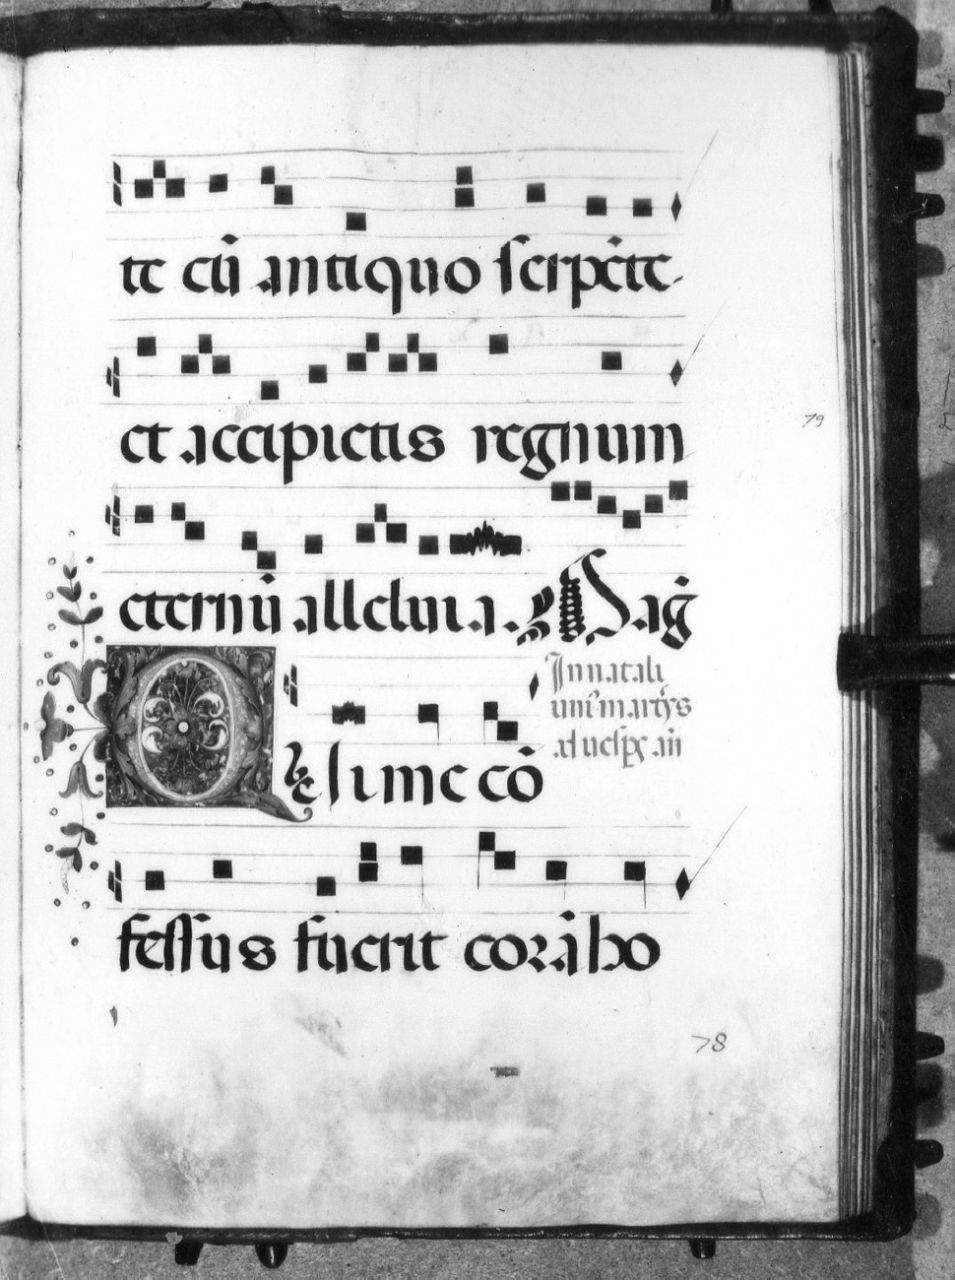 te cū antiquo serpēte
et accipietis regnum
eternū alleluia. Maḡ
In natali
uniꝰ martyꝛs
ad uesp̄ añ
Qui me cō
fessus fuerit corā ho
79
78